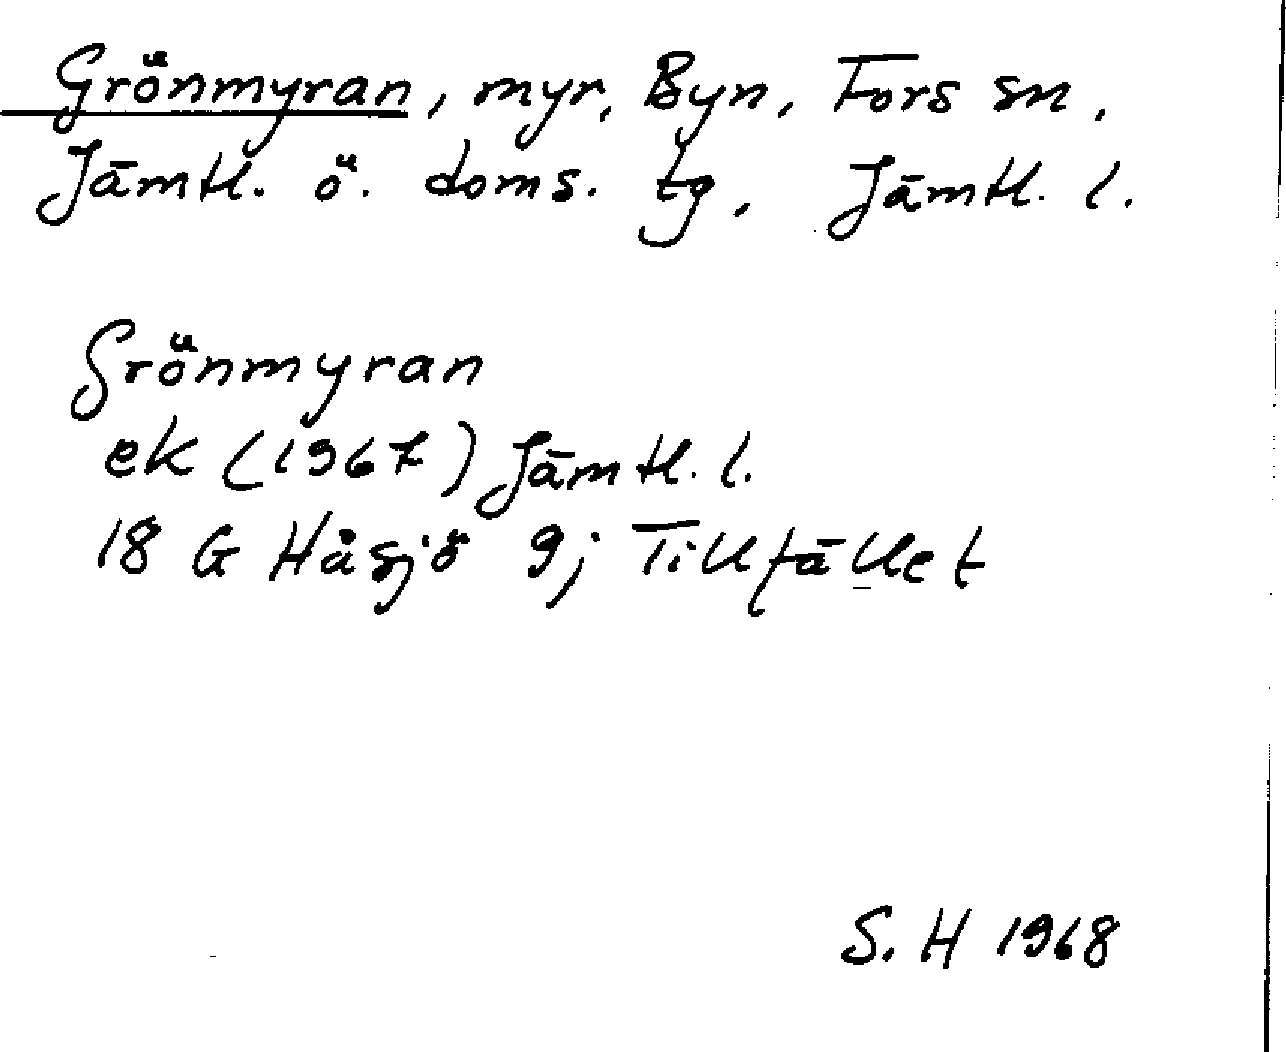 Grönmyran, myr, Byn, Fors sn,
Jämtl. ö. doms. tg, Jämtl. l.
Grönmyran
ek (1967) Jämtl. l.
18 G Håsjö 9j Tillfället
S. H 1968